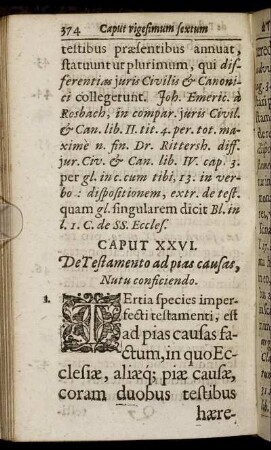 374 Caput vigesimum sextum
testibus præsentibus annuat,
statuunt ut plurimum, qui dif-
ferentias juris Civilis & Canoni-
ci collegerunt. Joh. Emeric. à
Rosbach, in compar. juris Civil.
& Can. lib. II. tit. 4. per. tot. ma-
xime n. fin. Dr. Rittersh. diff.
jur. Civ. & Can. lib. IV. cap. 3.
per gl. in c. cum tibi, 13. in ver-
bo: dispositionem, extr. de test.
quam gl. singularem dicit Bl. in
l. 1. C. de SS. Eccles.
CAPUT XXVI.
De Testamento ad pias causas,
Nutu conficiendo.
1. TErtia species imper-
fecti testamenti, est
ad pias causas fa-
ctum, in quo Ec-
clesiæ, aliæq; piæ causæ,
coram duobus testibus
hære-